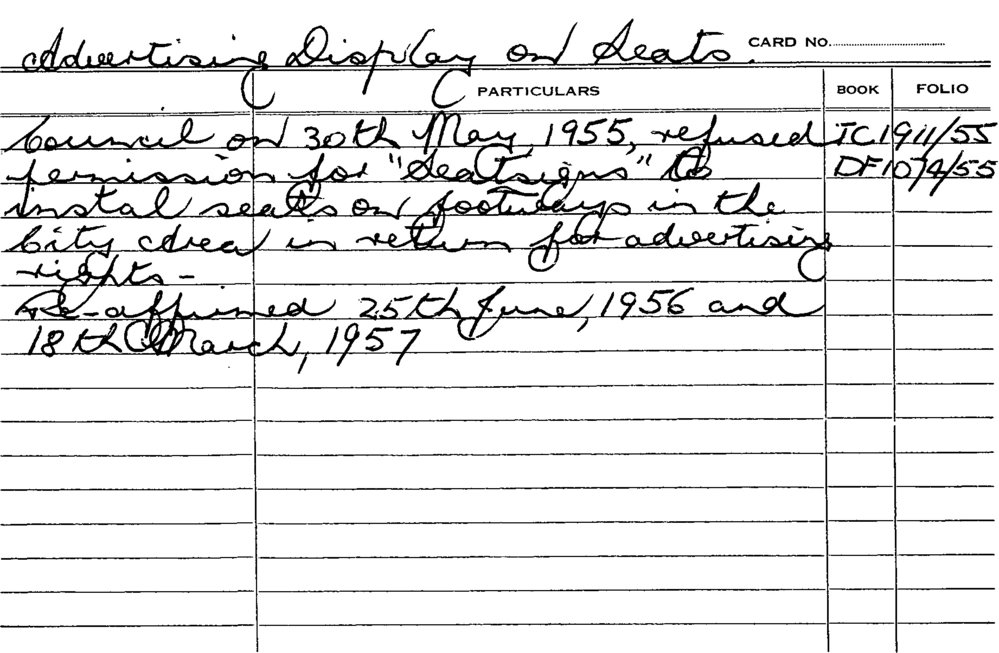 Advertising Display on Seats. CARD No.
PARTICULARS BOOK FOLIO
Council on 30th May, 1955, refused TC1911/55
permission for "Seatsigns" to DF1074/55
instal seats on footways in the
City Area in return for advertising
rights -
Re-affirmed 25th June, 1956 and
18th March, 1957